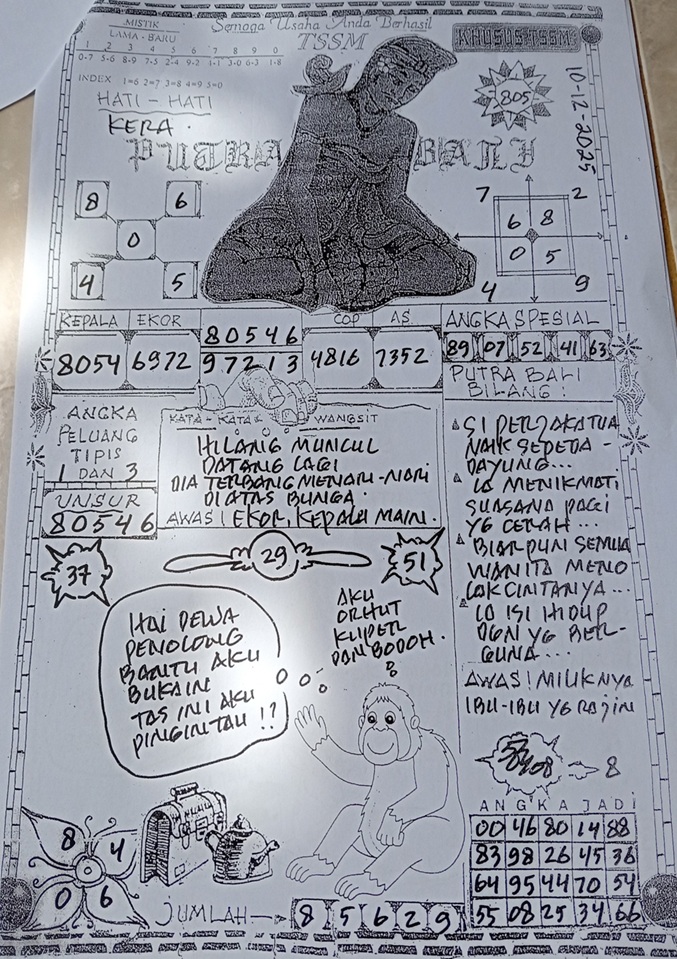 MISTIK
LAMA - BARU
1 2 3 4 5 6 7 8 9 0
0-7 5-6 8-9 7-5 2-4 9-2 1-1 3-0 6-3 1-8
INDEX 1=6 2=7 3=8 4=9 5=0
Semoga Usaha Anda Berhasil
TSSM
KHUSUS TSSM
10-12-2025
805
HATI - HATI
KERA.
PUTRA BALI
8 6
0
4 5
7 2
6 8
0 5
4 9
KEPALA EKOR
8054 6972
80546
97213
COP AS
4816 7352
ANGKA SPESIAL
89 07 52 41 63
PUTRA BALI
BILANG :
ANGKA
PELUANG
TIPIS
1 DAN 3
UNSUR
80546
KATA - KATA WANGSIT
HILANG MUNCUL
DATANG LAGI
DIA TERBANG MENARI-NARI
DI ATAS BUNGA.
AWAS! EKOR, KEPALA MAIN.
SI PERJAKA TUA
NAIK SEPEDA -
DAYUNG...
IA MENIKMATI
SUASANA PAGI
YG CERAH...
BIARPUN SEMUA
WANITA MENO
LAK CINTANYA...
IA ISI HIDUP
DGN YG BER-
GUNA....
AWAS! MILIKNYA
IBU-IBU YG RAJIN
37
29
51
HAI DEWA
PENOLONG
BANTU AKU
BUKAIN
TAS INI AKU
PINGIN TAU !?
AKU
KUPER
DAN BODOH.
08 8
8 4
0 6
JUMLAH
8 5 6 2 9
ANGKA JADI
00 46 80 14 88
83 98 26 45 36
64 95 44 70 54
55 08 25 34 66